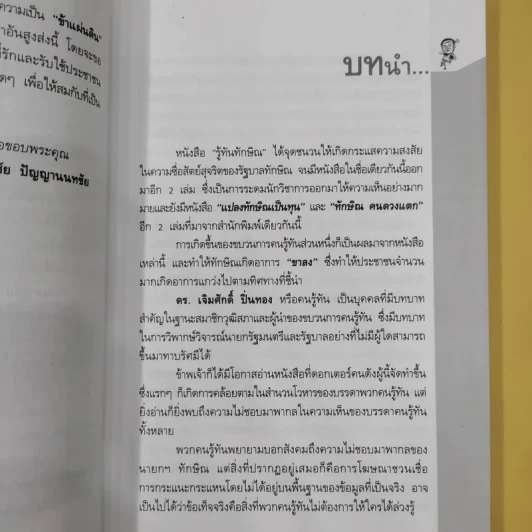 ความเป็น "ข้าแผ่นดิน"
าอันสูงส่งนี้ โดยจะขอ
ที่รักและรับใช้ประชาชน
ดๆ เพื่อให้สมกับที่เป็น
อขอบพระคุณ
ชัย ปัญญานนทชัย
บทนำ...
หนังสือ "รู้ทันทักษิณ" ได้จุดชนวนให้เกิดกระแสความสงสัย
ในความซื่อสัตย์สุจริตของรัฐบาลทักษิณ จนมีหนังสือในชื่อเดียวกันนี้ออก
มาอีก 2 เล่ม ซึ่งเป็นการระดมนักวิชาการออกมาให้ความเห็นอย่างมาก
มายและยังมีหนังสือ "แปลงทักษิณเป็นทุน" และ "ทักษิณ คนดวงแตก"
อีก 2 เล่มที่มาจากสำนักพิมพ์เดียวกันนี้
การเกิดขึ้นของขบวนการคนรู้ทันส่วนหนึ่งก็เป็นผลมาจากหนังสือ
เหล่านี้ และทำให้ทักษิณเกิดอาการ "ขาลง" ซึ่งทำให้ประชาชนจำนวน
มากเกิดอาการแกว่งไปตามทิศทางที่ชี้นำ
ดร. เจิมศักดิ์ ปิ่นทอง หรือคนรู้ทัน เป็นบุคคลที่มีบทบาท
สำคัญในฐานะสมาชิกวุฒิสภาและผู้นำของขบวนการคนรู้ทัน ซึ่งมีบทบาท
ในการวิพากษ์วิจารณ์นายกรัฐมนตรีและรัฐบาลอย่างที่ไม่มีผู้ใดสามารถ
ขึ้นมาทาบรัศมีได้
ข้าพเจ้าก็ได้มีโอกาสอ่านหนังสือที่ดอกเตอร์คนดังผู้นี้จัดทำขึ้น
ซึ่งแรกๆ ก็เกิดการคล้อยตามในสำนวนโวหารของบรรดาพวกคนรู้ทัน แต่
ยิ่งอ่านก็ยิ่งพบถึงความไม่ชอบมาพากลในความเห็นของบรรดาคนรู้ทัน
ทั้งหลาย
พวกคนรู้ทันพยายามบอกสังคมถึงความไม่ชอบมาพากลของ
นายกฯ ทักษิณ แต่สิ่งที่ปรากฏอยู่เสมอก็คือการโฆษณาชวนเชื่อ
การกระแนะกระแหนโดยไม่ได้อยู่บนพื้นฐานของข้อมูลที่เป็นจริง อาจ
เป็นไปได้ว่าข้อเท็จจริงคือสิ่งที่พวกคนรู้ทันไม่ต้องการให้ใครได้ล่วงรู้